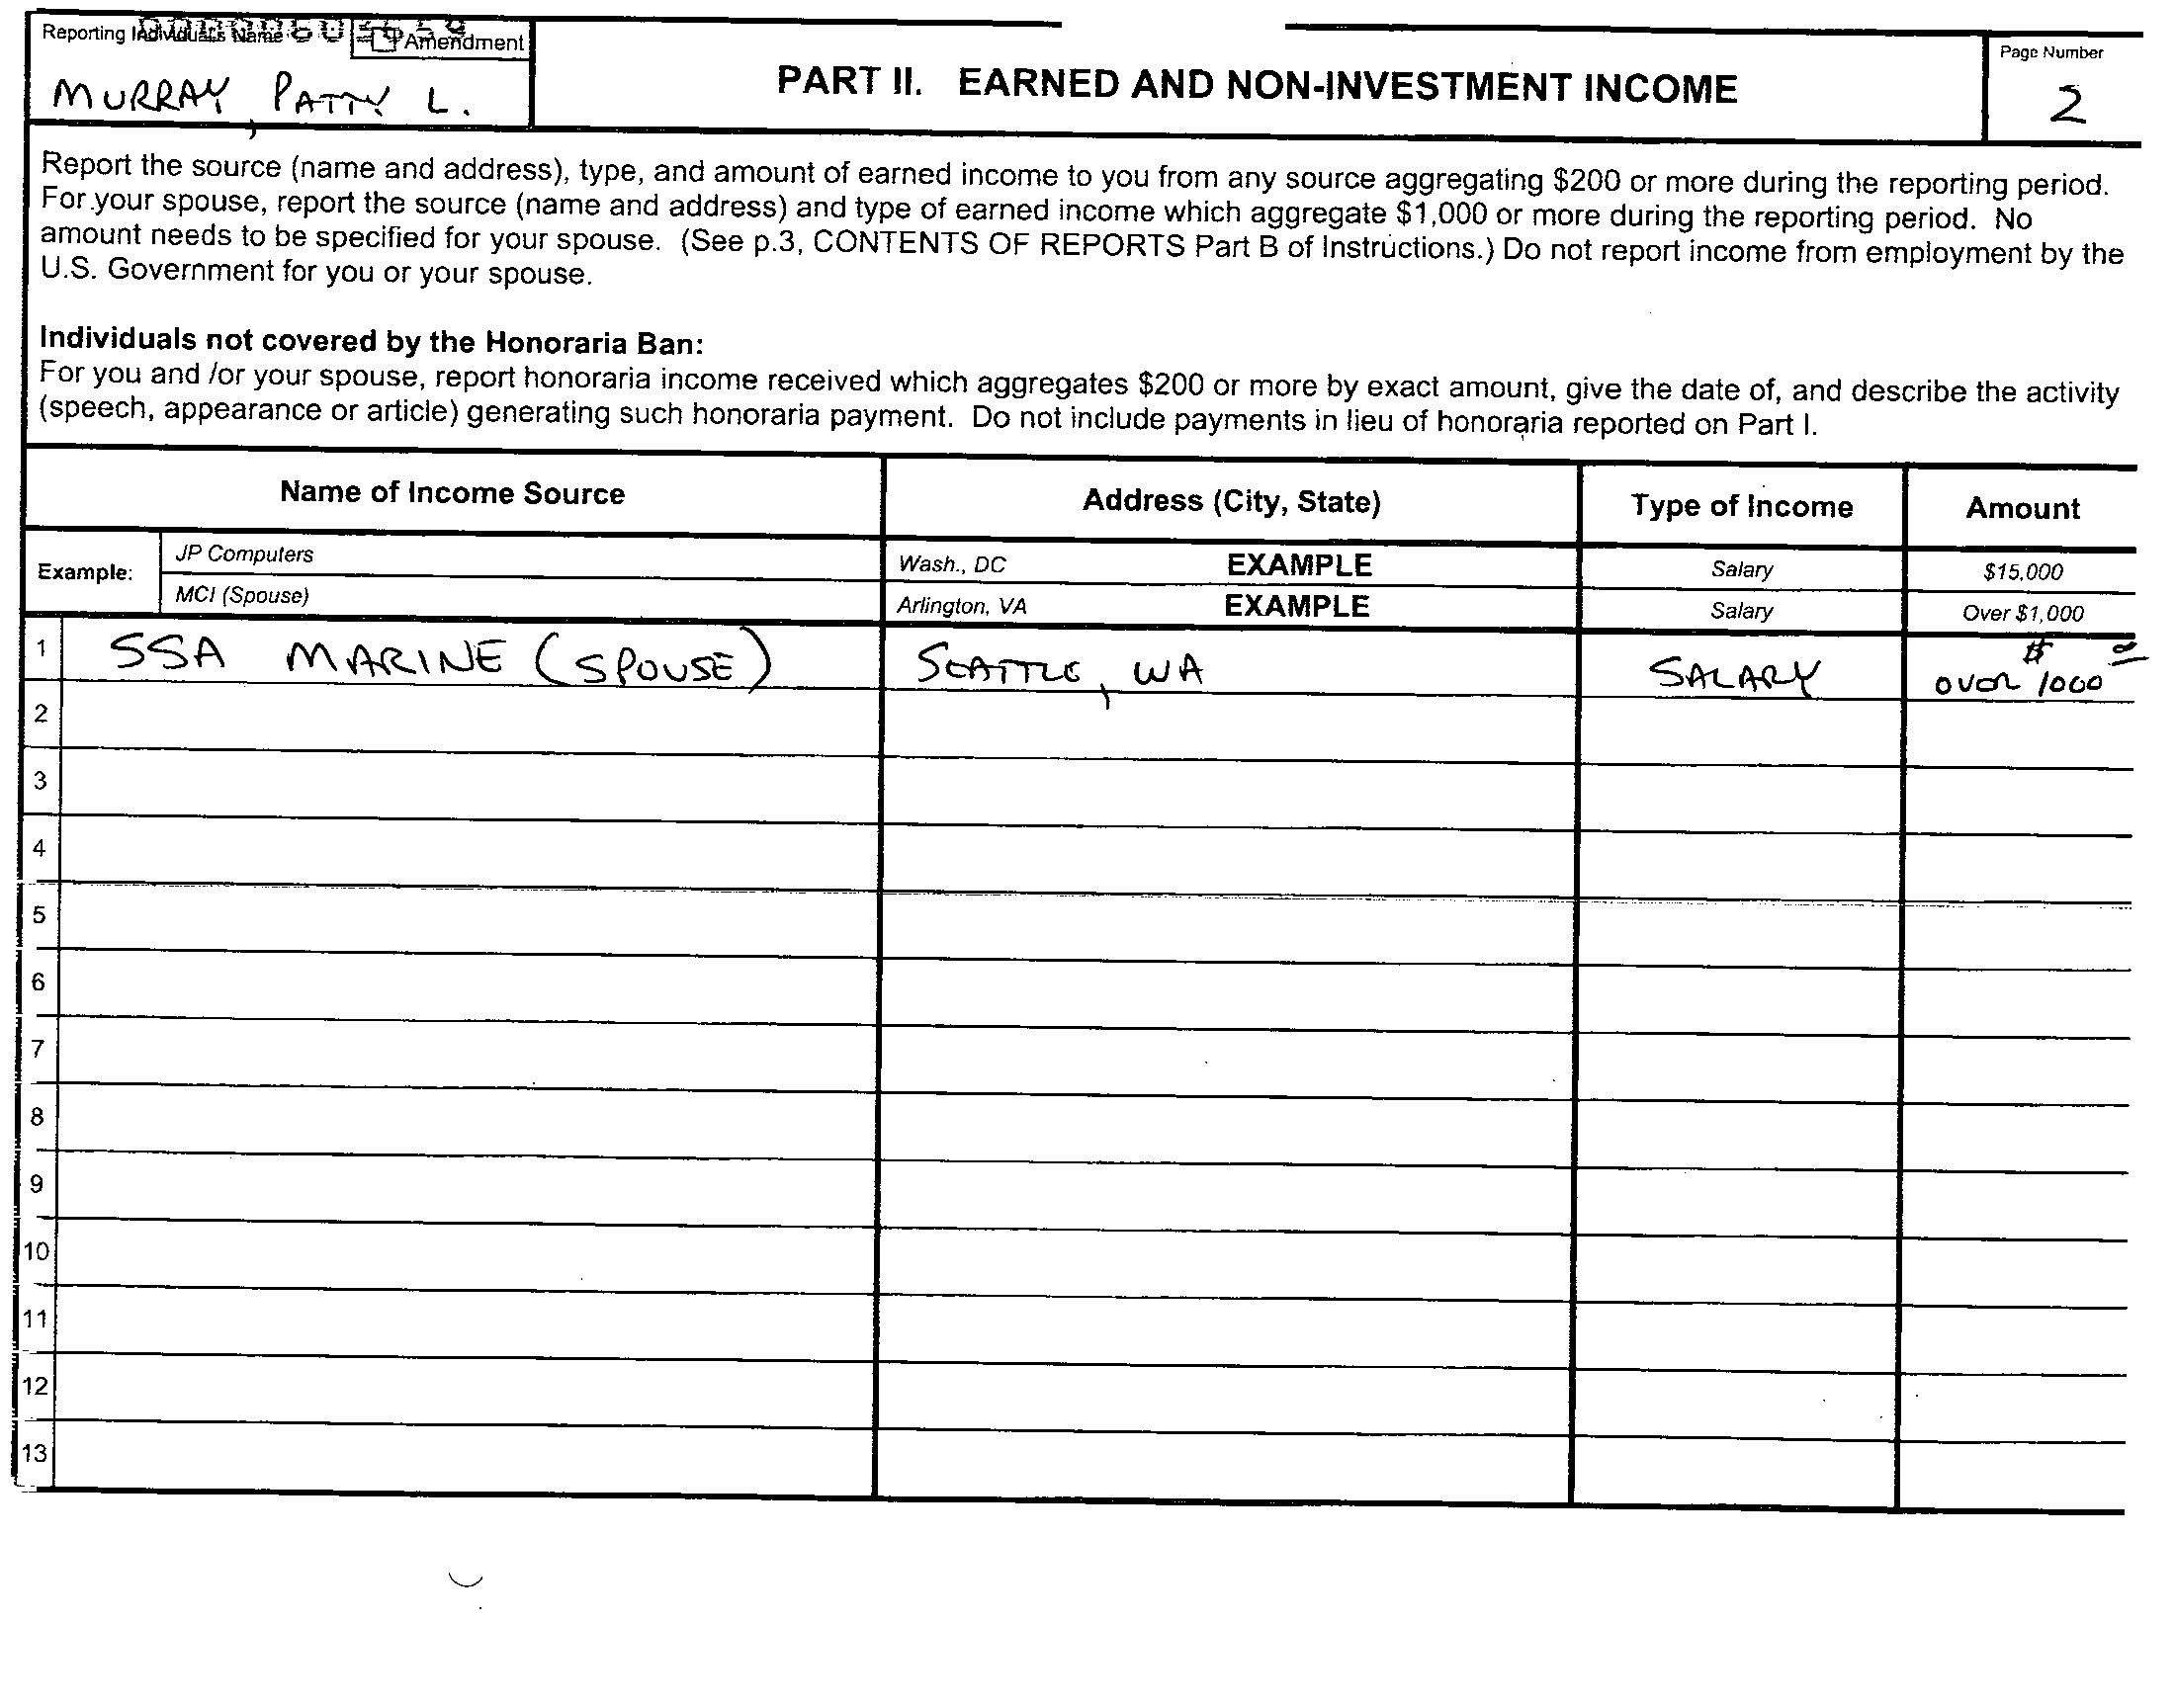 Reporting Individual's Name
Amendment
MURRAY, PATTY L.
PART II. EARNED AND NON-INVESTMENT INCOME
Page Number
2
Report the source (name and address), type, and amount of earned income to you from any source aggregating $200 or more during the reporting period.
For your spouse, report the source (name and address) and type of earned income which aggregate $1,000 or more during the reporting period. No
amount needs to be specified for your spouse. (See p.3, CONTENTS OF REPORTS Part B of Instructions.) Do not report income from employment by the
U.S. Government for you or your spouse.
Individuals not covered by the Honoraria Ban:
For you and /or your spouse, report honoraria income received which aggregates $200 or more by exact amount, give the date of, and describe the activity
(speech, appearance or article) generating such honoraria payment. Do not include payments in lieu of honoraria reported on Part I.
Name of Income Source Address (City, State) Type of Income Amount
Example: JP Computers Wash., DC EXAMPLE Salary $15,000
MCI (Spouse) Arlington, VA EXAMPLE Salary Over $1,000
1 SSA MARINE (SPOUSE) SEATTLE, WA SALARY OVER $1000
2
3
4
5
6
7
8
9
10
11
12
13